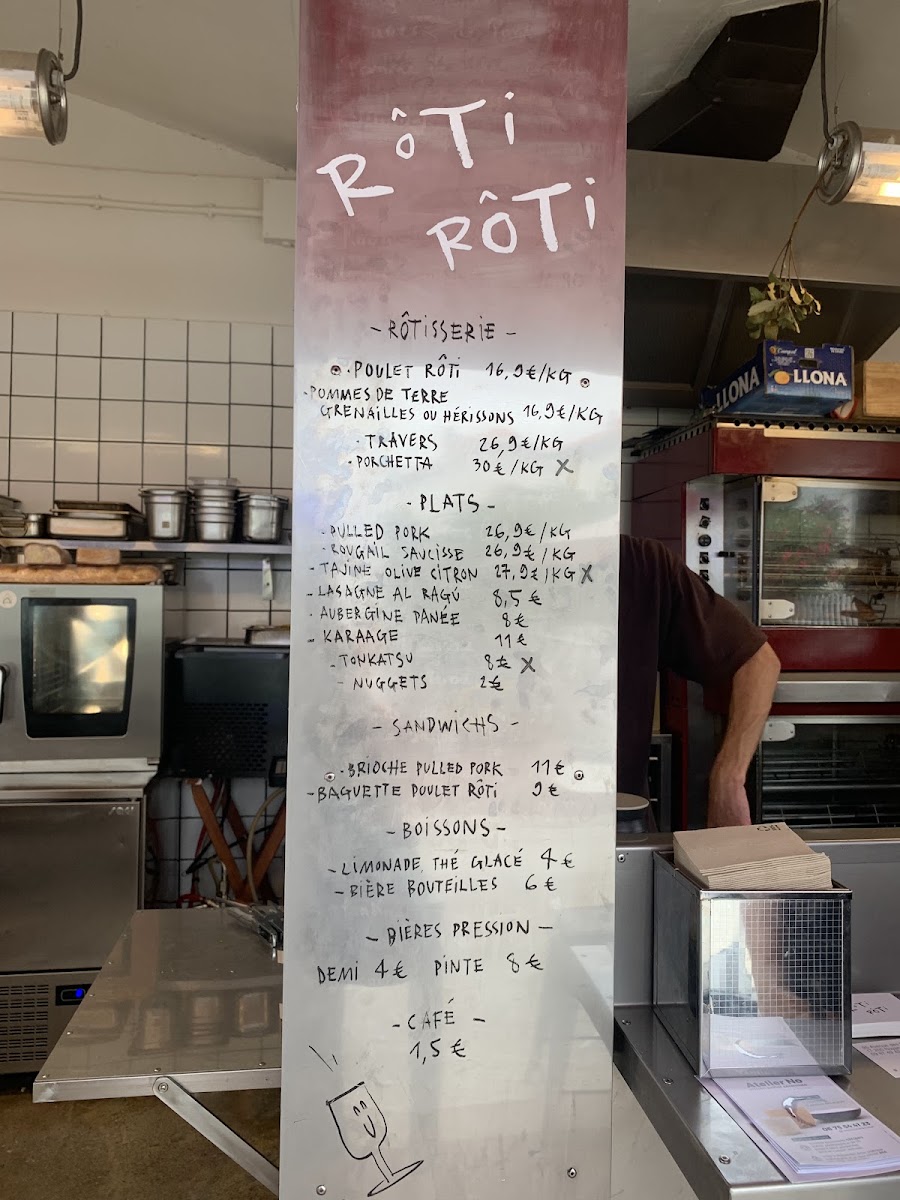 RÔTi
RÔTi
- RÔTISSERIE -
· POULET RÔTI 16,9€/KG
· POMMES DE TERRE
GRENAILLES OU HÉRISSONS 16,9€/KG
· TRAVERS 26,9€/KG
· PORCHETTA 30€/KG X
- PLATS -
- PULLED PORK 26,9€/KG
- ROUGAIL SAUCISSE 26,9€/KG
- TAJINE OLIVE CITRON 27,9€/KG X
- LASAGNE AL RAGÚ 8,5€
- AUBERGINE PANÉE 8€
- KARAAGE 11€
- TONKATSU 8€ X
- NUGGETS 2€
- SANDWICHS -
· BRIOCHE PULLED PORK 11€
- BAGUETTE POULET RÔTI 9€
- BOISSONS -
- LIMONADE, THÉ GLACÉ 4€
- BIÈRE BOUTEILLES 6€
- BIÈRES PRESSION -
DEMI 4€ PINTE 8€
- CAFÉ -
1,5€
LLONA
LLONA
RÔTi
RÔTi
Atelier No